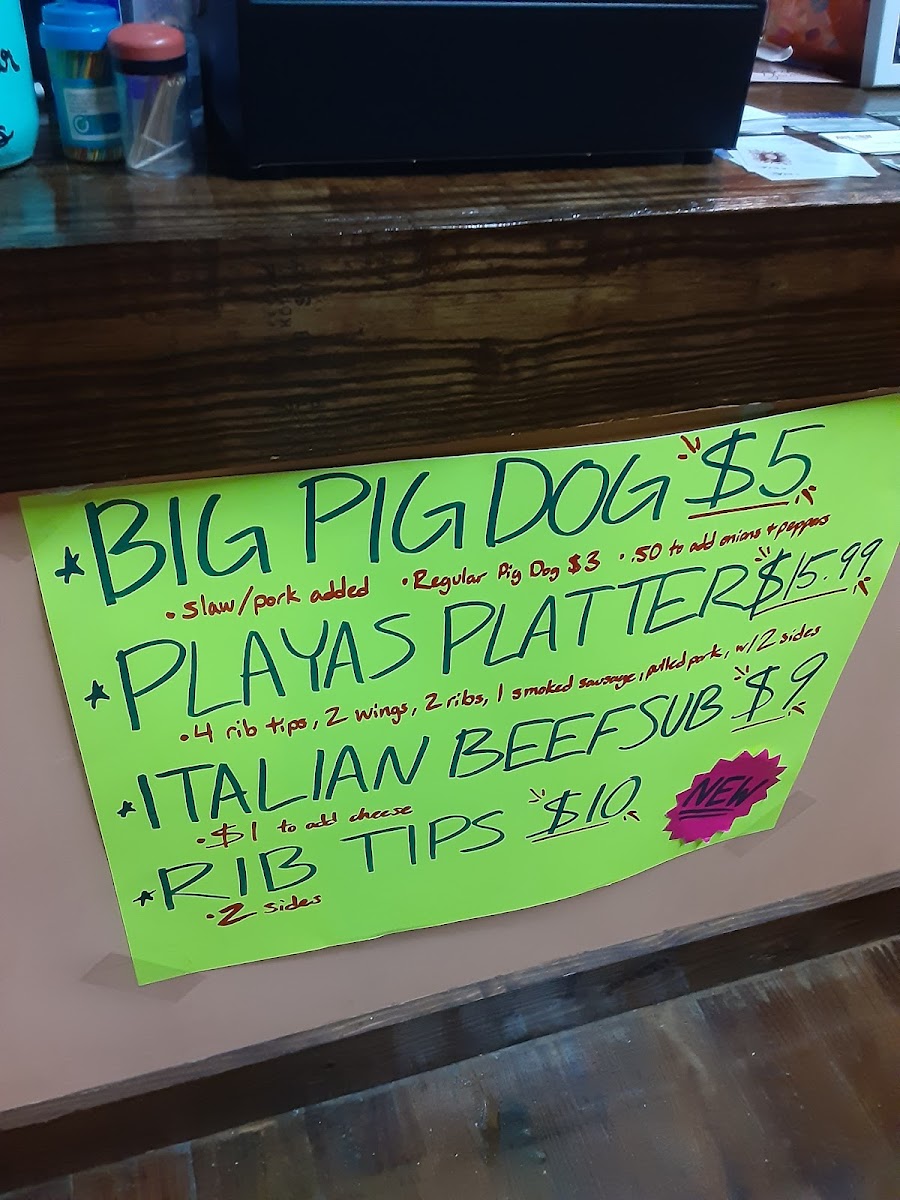 ★BIG PIG DOG $5
• slaw/pork added • Regular Pig Dog $3 • .50 to add onions + peppers
★PLAYAS PLATTER $15.99
• 4 rib tips, 2 wings, 2 ribs, 1 smoked sausage, pulled pork, w/ 2 sides
★ITALIAN BEEF SUB $9
• $1 to add cheese
★RIB TIPS $10
• 2 sides
NEW